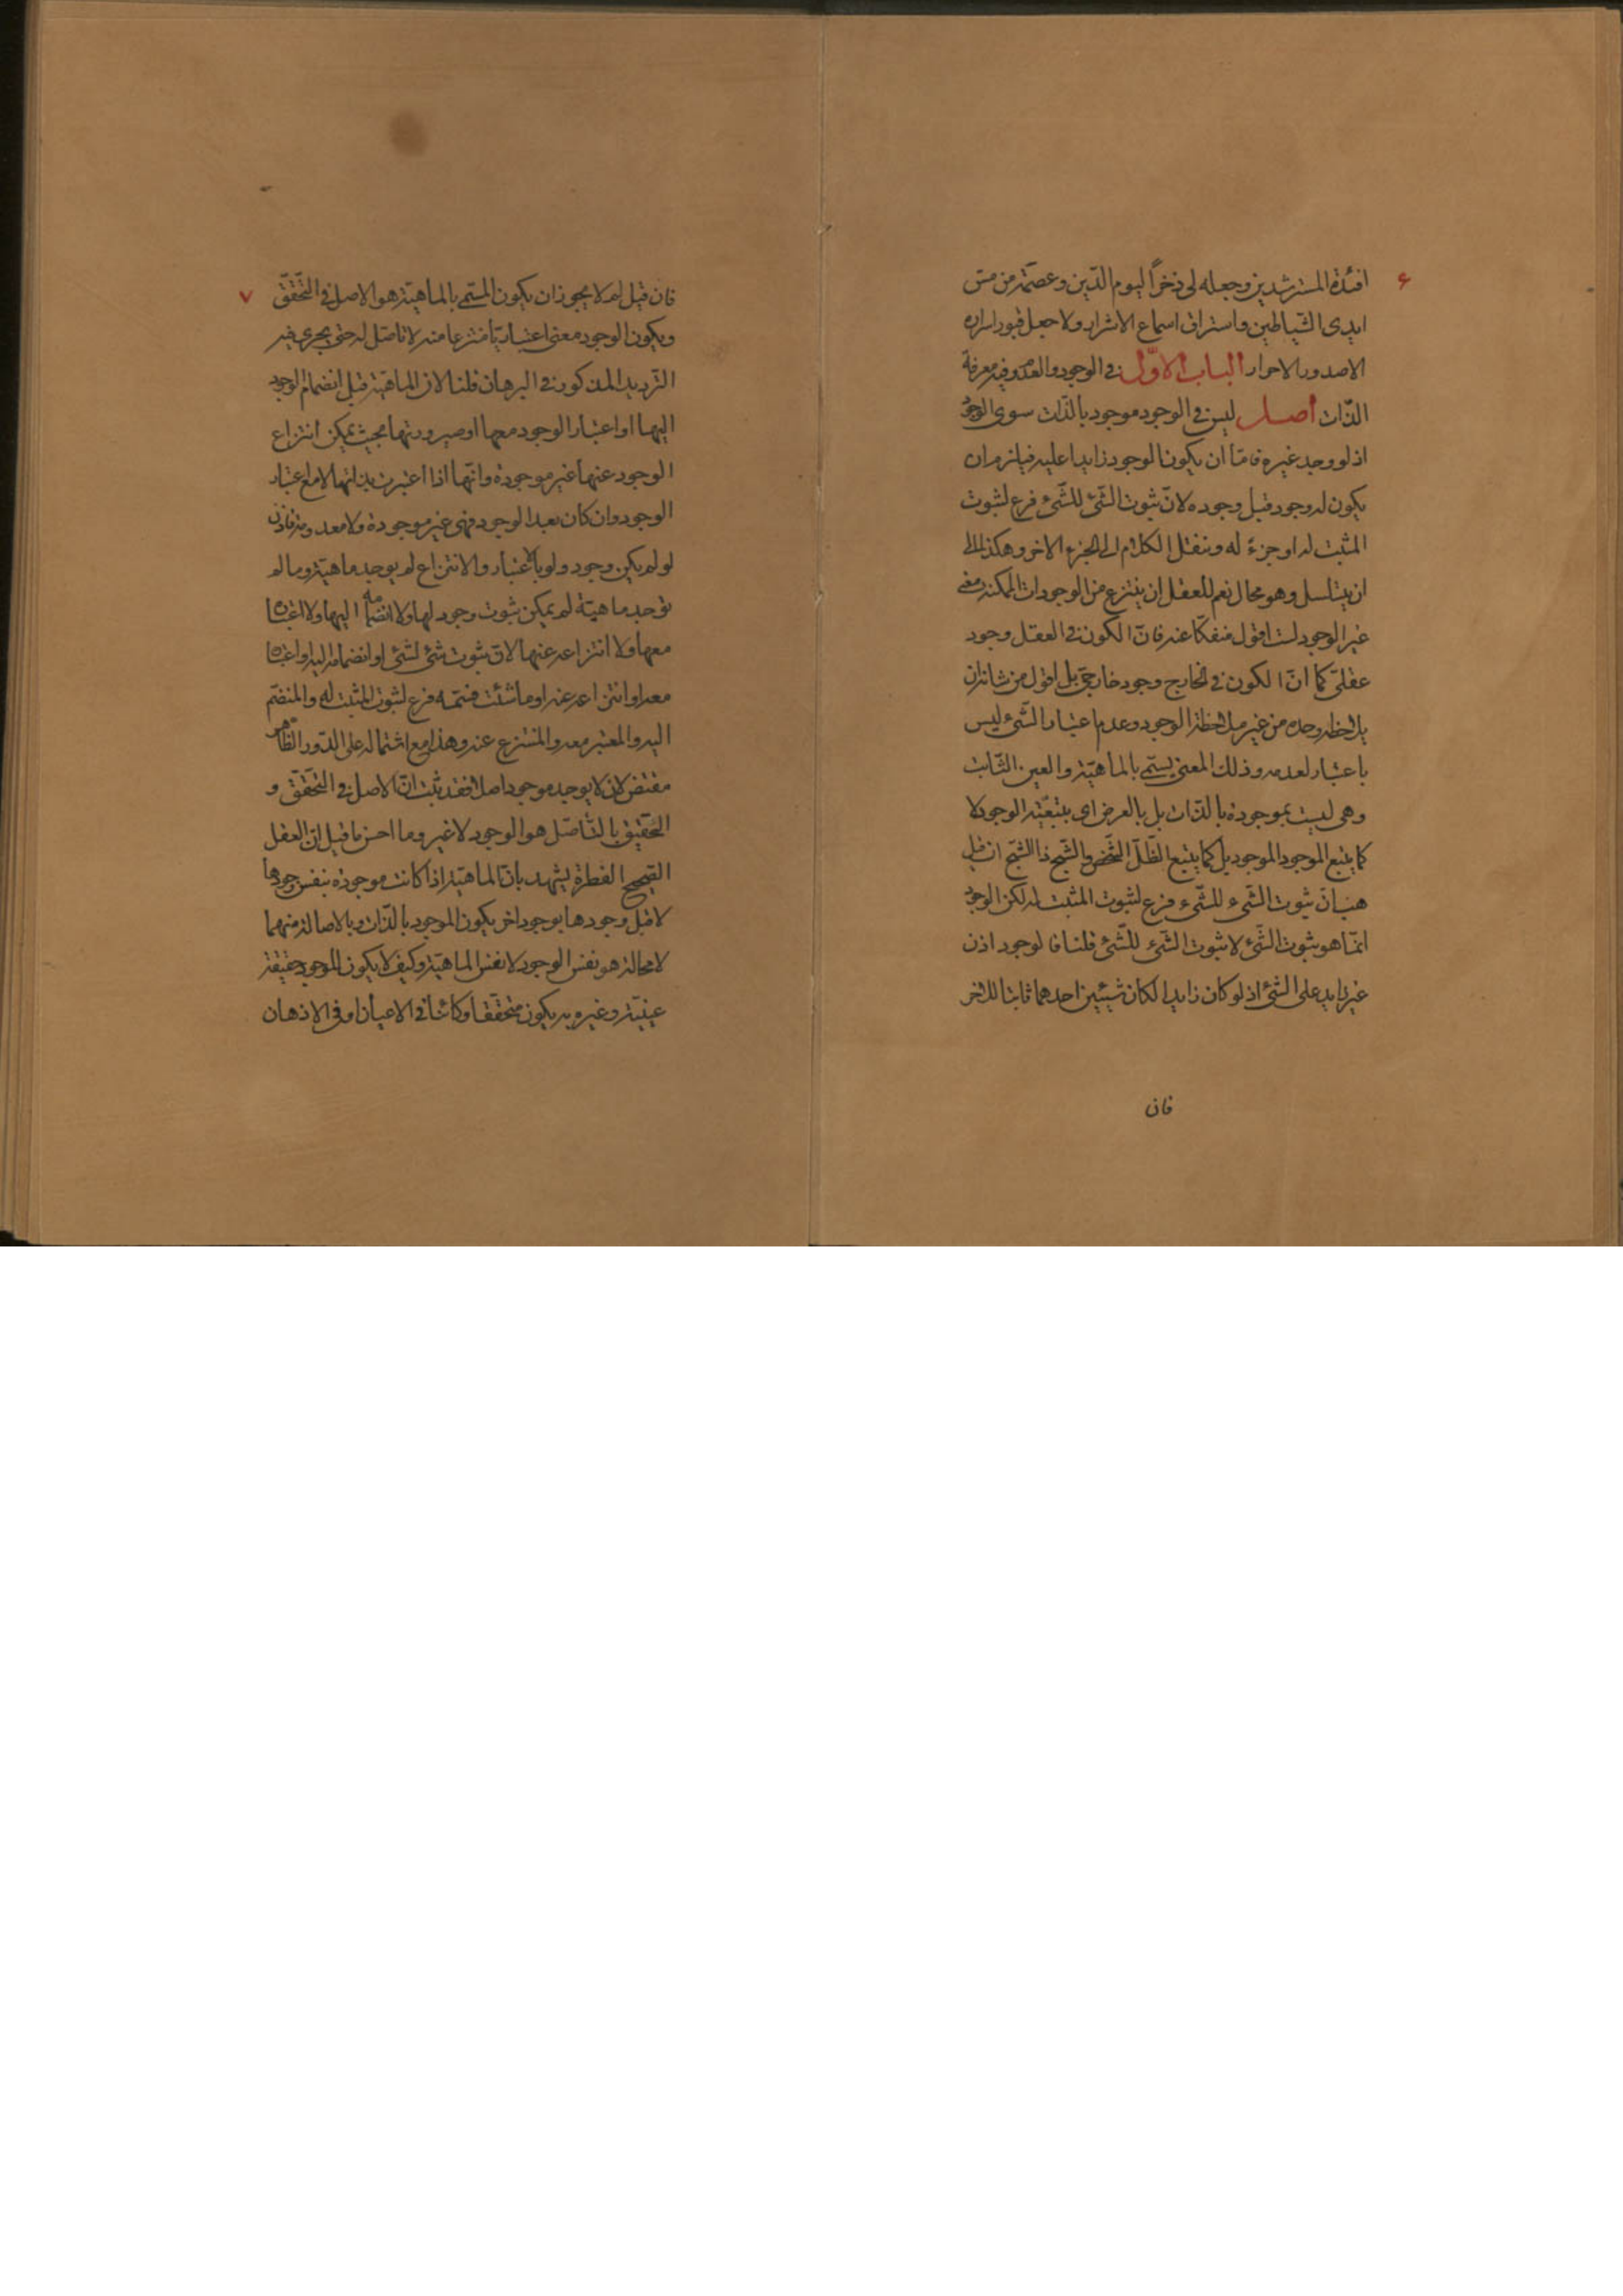 ۶
افئدة المسترشدين وجعله لى ذخرًا ليوم الدّين وعصمَة من مسّ
ايدى الشياطين واستراق اسماع الاشرار ولا جعل قبور اسراره
الا صدور الاحرار الباب الاوّل فى الوجود والعدم وفيه معرفة
الذّات أصل ليس فى الوجود موجود بالذّات سوى الوجود
اذ لو وجد غيره فامّا ان يكون الوجود زايدا عليه فيلزم ان
يكون له وجود قبل وجوده لانّ ثبوت الشّئ للشّئ فرع لثبوت
المثبت له او جزءً له وننقل الكلام الى الجزء الاخر وهكذا الى
ان يتسلسل وهو محال نعم للعقل ان ينتزع من الوجودات الممكنة معنى
غير الوجود لست اقول منفكّا عنه فانّ الكون فى العقل وجود
عقلىّ كما انّ الكون فى الخارج وجود خارجىّ بل اقول من شانه ان
يلاحظه وحده من غير ملاحظة الوجود وعدم اعتبار الشّئ ليس
باعتبار لعدمه وذلك المعنى يسمّى بالماهيّة والعين الثّابت
وهى ليست بموجودة بالذّات بل بالعرض اى بتبعّيّة الوجود لا
كما يتبع الموجود الموجود بل كما يتبع الظّلّ الشّخص والشّبح ذا الشّبح ان قيل
هب انّ ثبوت الشّىء للشّىء فرع لثبوت المثبت له لكن الوجود
انمّا هو ثبوت الشّئ لا ثبوت الشّئ للشّئ قلنا فالوجود اذن
غير زايد على الشئ اذ لو كان زايدا لكان شيئين احدهما ثابتا للاخر
فان
۷
فان قيل لم لا يجوز ان يكون المسمّى بالماهيّة هو الاصل فى التّحقّق
ويكون الوجود معنى اعتباريّا منتزعا منه لا تاصّل له حتى يجرى فيه
التّرديد المذكور فى البرهان قلنا لانّ الماهيّة قبل انضمام الوجود
اليها او اعتبار الوجود معها او صيرورتها بحيث يمكن انتزاع
الوجود عنها غير موجودة وانّها اذا اعتبرت بذاتها لا مع اعتبار
الوجود وان كان بعد الوجود فهى غير موجودة ولا معدومة فاذن
لو لم يكن وجود ولو بالاعتبار والانتزاع لم يوجد ماهيّة وما لم
توجد ماهيّة لم يمكن ثبوت وجود لها ولا انضمامه اليها ولا اعتباره
معها ولا انتزاعه عنها لانّ ثبوت شئ لشئ او انضمامه اليه او اعتباره
معه او انتزاعه عنه او ما شئت فسمّه فرع لثبوت المثبت له والمنضمّ
اليه والمعتبر معه والمنتزع عنه وهذا مع اشتماله على الدّور الظّاهر
مقتض لان لا يوجد موجود اصلا فقد ثبت انّ الاصل فى التّحقّق و
الحقيق بالتّاصّل هو الوجود لا غير وما احسن ما قيل انّ العقل
الصّحيح الفطرة يشهد بانّ الماهيّة اذا كانت موجودة بنفس وجودها
لا قبل وجودها بوجود اخر يكون الموجود بالذّات وبالاصالة منهما
لا محالة هو نفس الوجود لا نفس الماهيّة وكيف لا يكون للوجود حقيقة
عينيّة وغيره به يكون متحقّقا وكائنا فى الاعيان او فى الاذهان